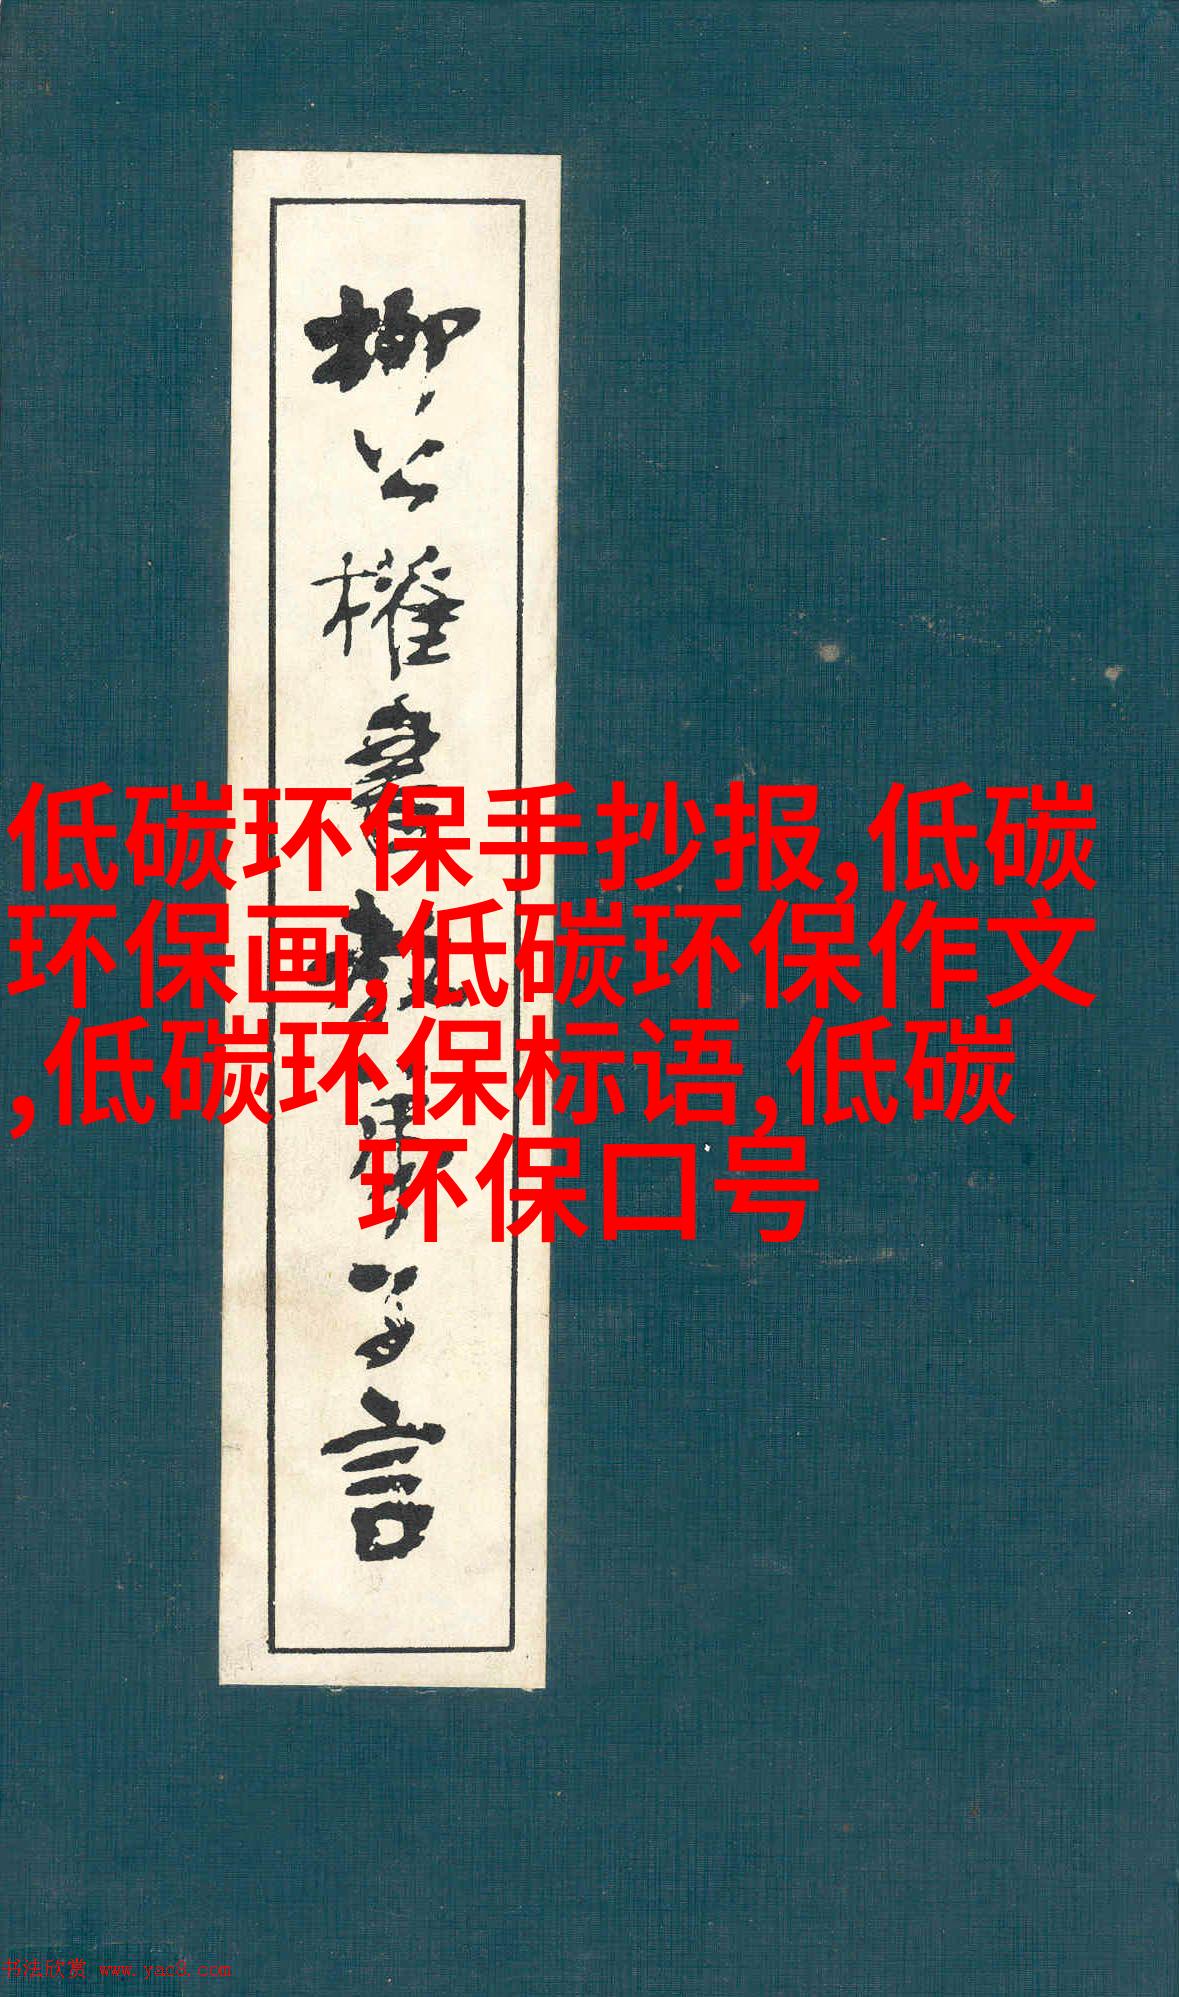 柳公權書
低碳环保手抄报,低碳
环保画,低碳环保作文
,低碳环保标语,低碳
环保口号
言
书法欣赏 www.yac8.com